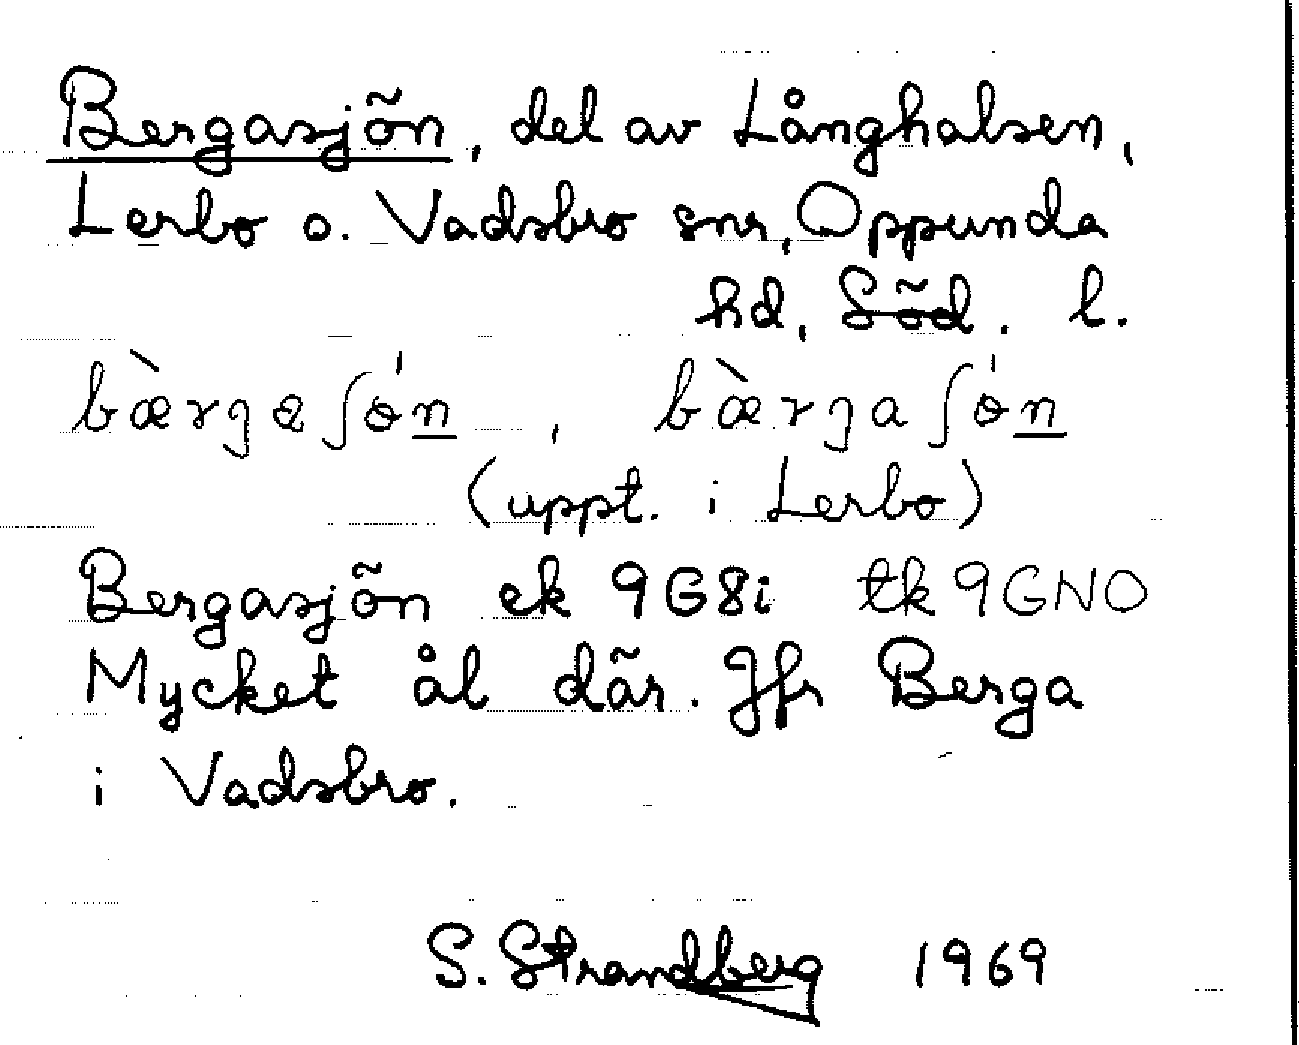 Bergasjön, del av Långhalsen,
Lerbo o. Vadsbro snr, Oppunda
hd, Söd. l.
bæ̀rgaʃɵ́n, bæ̀rgaʃɵ́n
(uppt. i Lerbo)
Bergasjön ek 9G8i tk 9GNO
Mycket ål där. Jfr Berga
i Vadsbro.
S. Strandberg 1969